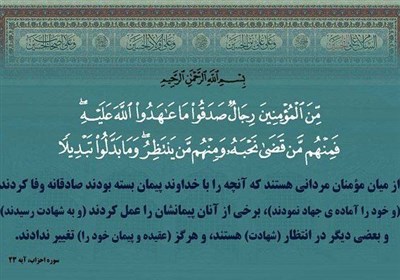 السلام علی الحسین وعلی علی بن الحسین وعلی اولاد الحسین وعلی اصحاب الحسین
بِسْمِ اللَّهِ الرَّحْمَٰنِ الرَّحِيمِ
مِّنَ الْمُؤْمِنِينَ رِجَالٌ صَدَقُوا مَا عَاهَدُوا اللَّهَ عَلَيْهِ ۖ
فَمِنْهُم مَّن قَضَىٰ نَحْبَهُ وَمِنْهُم مَّن يَنتَظِرُ ۖ وَمَا بَدَّلُوا تَبْدِيلًا
از میان مؤمنان مردانی هستند که آنچه را با خداوند پیمان بسته بودند صادقانه وفا کردند
(و خود را آماده ی جهاد نمودند)، برخی از آنان پیمانشان را عمل کردند (و به شهادت رسیدند)
و بعضی دیگر در انتظار (شهادت) هستند، و هرگز (عقیده و پیمان خود را) تغییر ندادند.
سوره احزاب، آیه ۲۳